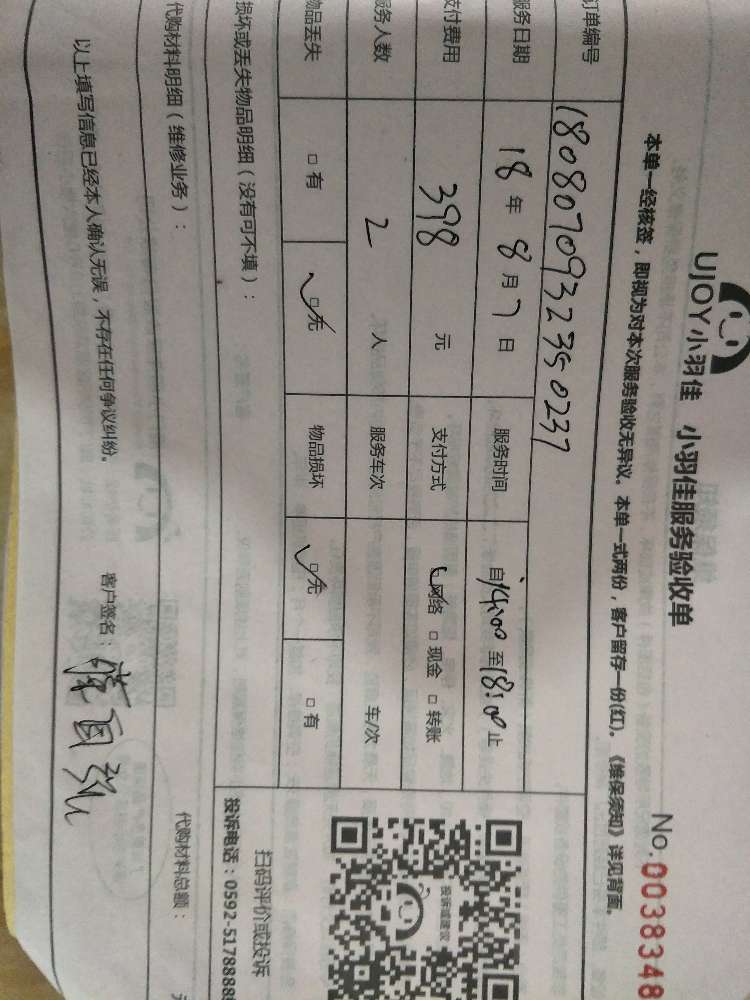 UJOY小羽佳 小羽佳服务验收单
No.0038348
本单一经核签，即视为对本次服务验收无异议。本单一式两份，客户留存一份(红)。《维保须知》详见背面。
订单编号 1808070932350237
服务日期 18年8月7日 服务时间 自14:00至18:00止
支付费用 398元 支付方式 网络 □现金 □转账
服务人数 2人 服务车次 车/次
物品丢失 □有 ✓□无 物品损坏 ✓□无 □有
损坏或丢失物品明细（没有可不填）：
投诉建议
扫码评价或投诉
投诉电话：0592-5178888
代购材料明细（维修业务）： 代购材料总额：
以上填写信息已经本人确认无误，不存在任何争议纠纷。 客户签名：